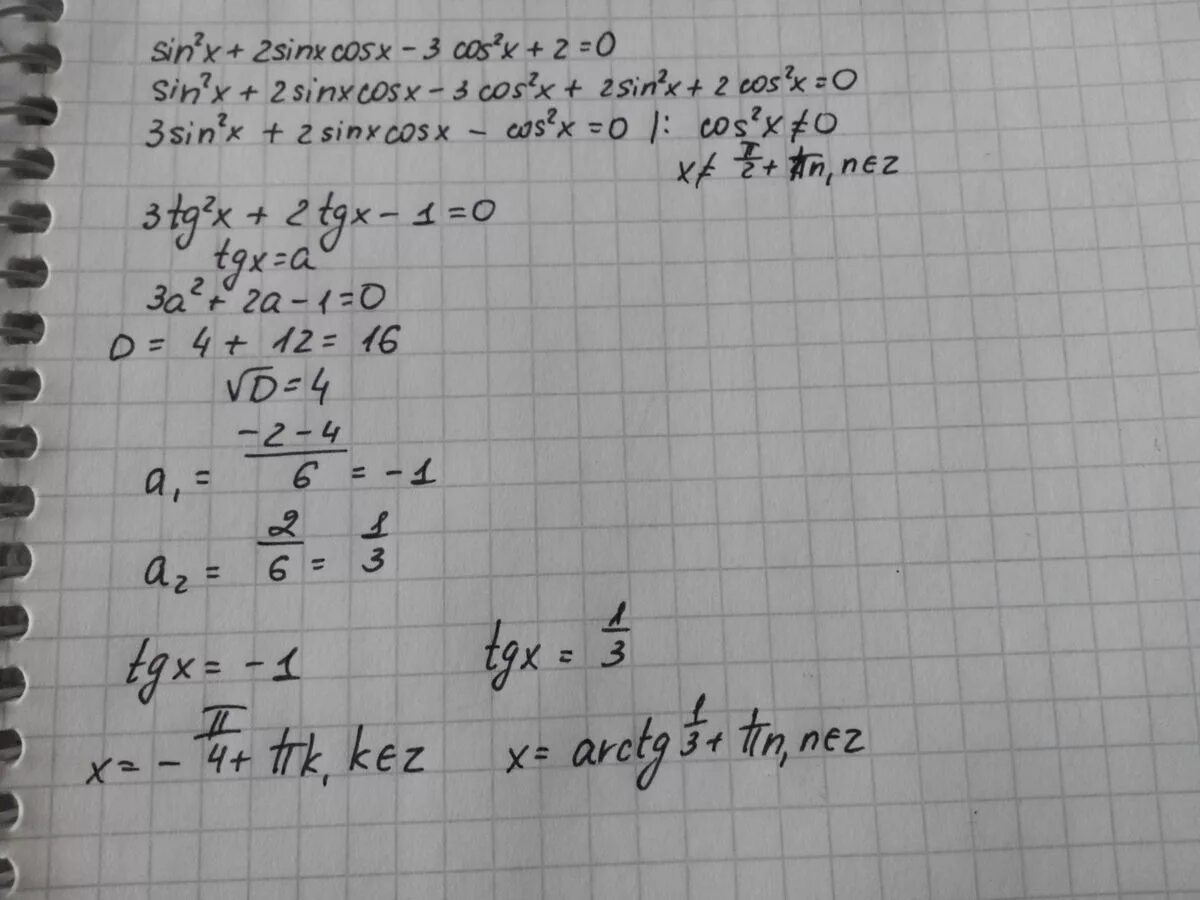 sin²x + 2sinxcosx - 3 cos²x + 2 = 0
sin²x + 2sinxcosx - 3cos²x + 2sin²x + 2cos²x = 0
3sin²x + 2sinxcosx - cos²x = 0 |: cos²x ≠ 0
x ≠ π/2 + πn, n∈z
3tg²x + 2tgx - 1 = 0
tgx = a
3a² + 2a - 1 = 0
D = 4 + 12 = 16
√D = 4
a₁ = (-2 - 4)/6 = -1
a₂ = 2/6 = 1/3
tgx = -1 tgx = 1/3
x = - π/4 + πk, k∈z x = arctg 1/3 + πn, n∈z